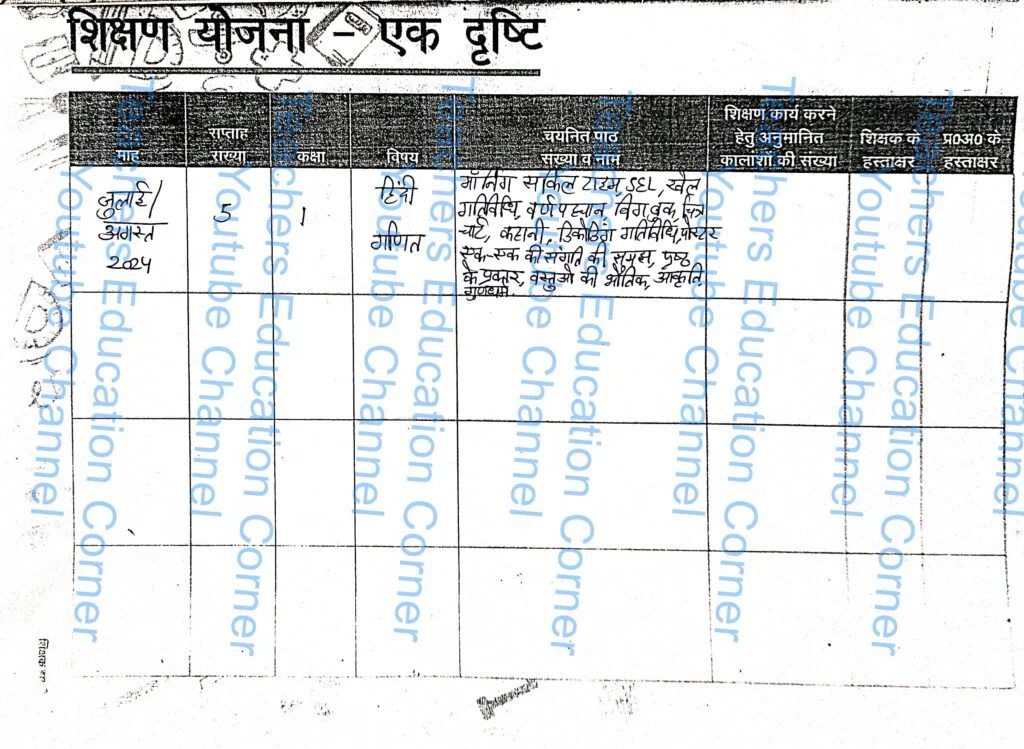 शिक्षण योजना – एक दृष्टि
माह
सप्ताह
संख्या
कक्षा
विषय
चयनित पाठ
संख्या व नाम
शिक्षण कार्य करने
हेतु अनुमानित
कालांशों की संख्या
शिक्षक के
हस्ताक्षर
प्र०अ० के
हस्ताक्षर
जुलाई/
अगस्त
2024
5
1
हिंदी
गणित
मॉर्निंग सर्किल टाइम, SEL, खेल
गतिविधि, वर्ण पहचान, बिग बुक, चित्र
चार्ट, कहानी, डिकोडिंग गतिविधि, पोस्टर
एक-एक की संगति की समझ, पृष्ठ
के प्रकार, वस्तुओ की भौतिक, आकृति
गुणधर्म.
Teachers Education Corner
Youtube Channel
Teachers Education Corner
Youtube Channel
Teachers Education Corner
Youtube Channel
Teachers Education Corner
Youtube Channel
Teachers Education Corner
Youtube Channel
Teachers Education Corner
Youtube Channel